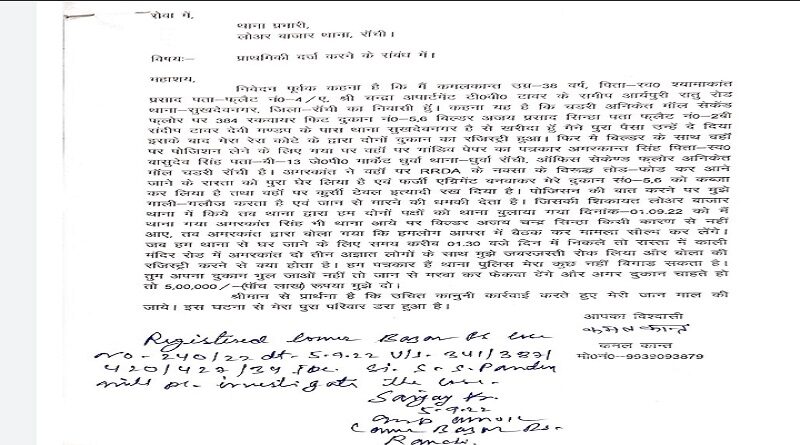 सेवा में,
थाना प्रभारी,
लोअर बाजार थाना, राँची।
विषयः— प्राथमिकी दर्ज करने के संबंध में।
महाशय,
निवेदन पूर्वक कहना है कि मैं कमलकान्त उम्र-38 वर्ष, पिता-स्व0 श्यामाकांत
प्रसाद पता-फ्लैट नं0-4/ए, श्री चन्द्रा अपार्टमेंट टी०वी० टावर के समीप आर्यपुरी रातु रोड
थाना-सुखदेवनगर, जिला-राँची का निवासी हूँ। कहना यह है कि चडरी अनिकेत मॉल सेकेंड
फ्लोर पर 384 स्कवायर फिट दुकान नं0-5,6 बिल्डर अजय प्रसाद सिन्हा पता फ्लैट नं0-2बी
संदीप टावर देवी मण्डप के पास थाना सुखदेवनगर है से खरीदा हूँ मैने पुरा पैसा उन्हें दे दिया
इसके बाद मेरा रेरा कोर्ट के द्वारा दोनों दुकान का रजिस्ट्री हुआ। फिर मै बिल्डर के साथ वहाँ
पर पोजिशन लेने के लिए गया पर वहाँ पर गांडिव पेपर का पत्रकार अमरकान्त सिंह पिता-स्व०
वासुदेव सिंह पता-बी-13 जे०पी० मार्केट धुर्वा थाना-धुर्वा राँची, ऑफिस सेकेण्ड फ्लोर अनिकेत
मॉल चडरी राँची है। अमरकांत ने वहाँ पर RRDA के नक्सा के विरुद्ध तोड़-फोड़ कर आने
जाने के रास्ता को पुरा घेर लिया है एवं फर्जी एग्रिमेंट बनवाकर मेरे दुकान सं0-5,6 को कब्जा
कर लिया है तथा वहाँ पर कुर्सी टेबल इत्यादी रख दिया है। पोजिसन की बात करने पर मुझे
गाली-गलौज करता है एवं जान से मारने की धमकी देता है। जिसकी शिकायत लोअर बाजार
थाना में किये तब थाना द्वारा हम दोनों पक्षों को थाना बुलाया गया दिनांक-01.09.22 को मैं
थाना गया अमरकांत सिंह भी थाना आये पर बिल्डर अजय चन्द्र सिन्हा किसी कारण से नहीं
आए, तब अमरकांत द्वारा बोला गया कि हमलोग आपस में बैठक कर मामला सोल्भ कर लेंगे।
जब हम थाना से घर जाने के लिए समय करीब 01.30 बजे दिन में निकले तो रास्ता में काली
मंदिर रोड में अमरकांत दो तीन अज्ञात लोगों के साथ मुझे जबरजस्ती रोक लिया और बोला की
रजिस्ट्री करने से क्या होता है। हम पत्रकार हैं थाना पुलिस मेरा कुछ नहीं बिगाड सकता है।
तुम अपना दुकान भुल जाओं नहीं तो जान से मरवा कर फेकवा देंगे और अगर दुकान चाहते हो
तो 5,00,000/-(पाँच लाख) रूपया मुझे दो।
श्रीमान से प्रार्थना है कि उचित कानुनी कार्रवाई करते हुए मेरी जान माल की
जाये। इस घटना से मेरा पुरा परिवार डरा हुआ है।
आपका विश्वासी
कमल कान्त
कमल कान्त
मो०नं०-9932093879
Registered Lower Bazar PS Case
No- 240/22 dt- 5.9.22 U/s- 341/387/
420/427/34 IPC. SI. S.S. Pandey
will pl. investigate the case.
Sanjay Kr.
5-9-22
Lower Bazar PS.
Ranchi.